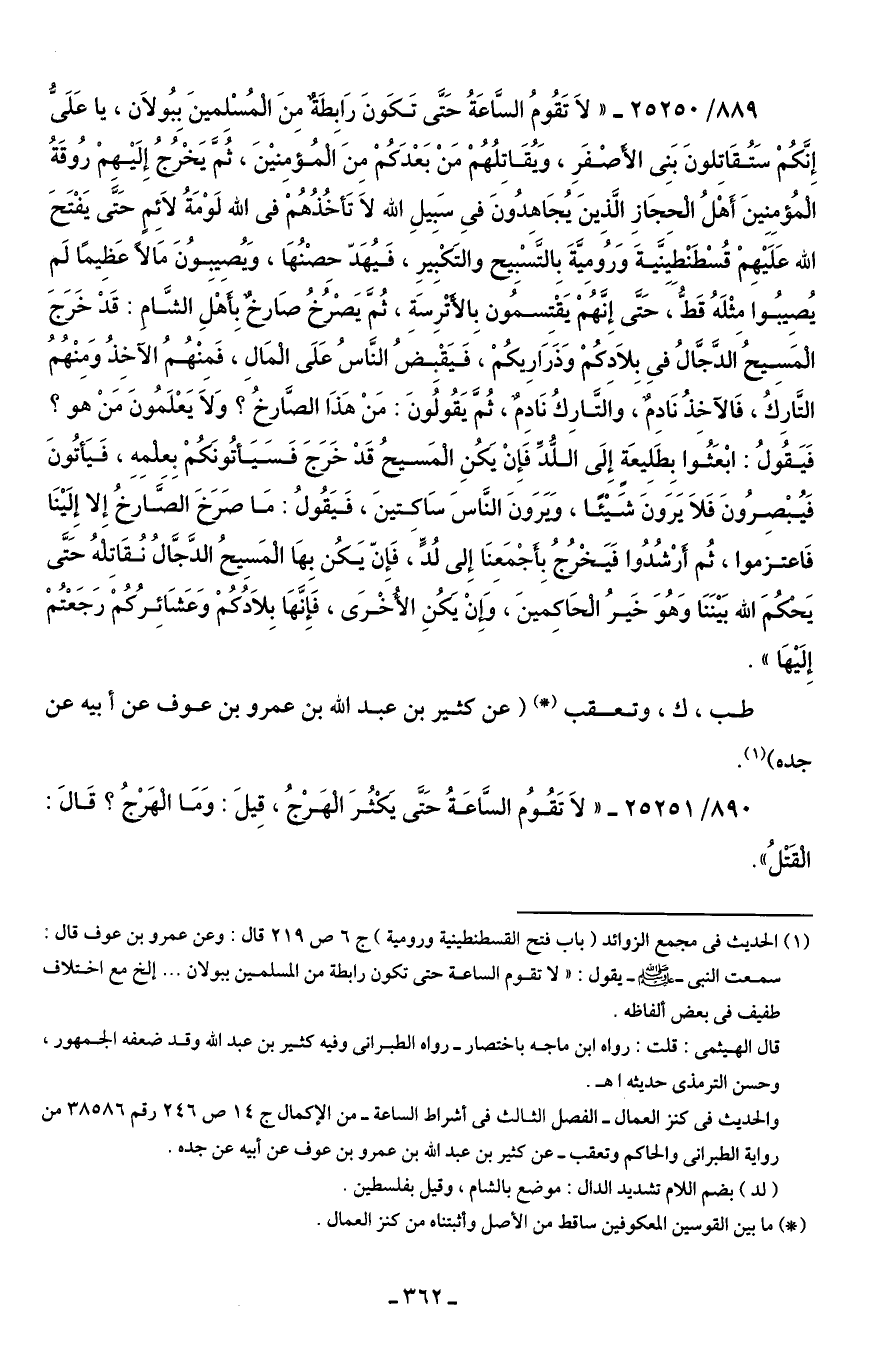 ٨٨٩/ ٢٥٢٥٠ ـ « لاَ تَقُومُ السَّاعَةُ حَتَّى تَكُونَ رَابِطَةٌ مِنَ الْمُسْلِمينَ بِبُولاَن ، يا عَلَىُّ
إِنَّكُمْ سَتُقَاتِلونَ بَنِى الأَصْفَرِ ، وَيُقَاتِلُهُمْ مَنْ بَعْدَكُمْ مِنَ الْمُؤمنِيْنَ ، ثُمَّ يَخْرُجُ إِلَيْهِمْ رُوقَةُ
الْمُؤمِنِينَ أَهْلُ الحجَازِ الَّذينَ يُجَاهدُونَ فى سَبِيلِ الله لاَ تَأخُذُهُمْ فى الله لَوْمَةُ لاَئِمٍ حَتَّى يَفْتَحَ
الله عَلَيْهِمْ قُسْطَنْطِينِيَّةَ وَرُوميَّةَ بِالتَّسْبِيحِ والتَكْبِيرِ ، فَيُهَدّ حصْنُهَا ، وَيُصِيبُونَ مَالاً عَظِيمًا لَم
يُصِيبُوا مثْلَهُ قَطُّ ، حَتَّى إِنَّهُمْ يَقْتسمُون بالأَتْرِسَة ، ثُمَّ يَصْرُخُ صَارخٌ بِأَهْلِ الشَّامِ : قَدْ خَرَجَ
الْمَسيحُ الدَّجَّالُ فى بِلاَدكُمْ وَذَرَارِيكُمْ ، فَيَقْبضُ النَّاسُ عَلَى الْمَالِ ، فَمنْهُمُ الآخذُ وَمنْهُمُ
التَّارِكُ ، فَالآخذُ نَادمٌ ، والتَّارِكُ نَادمٌ ، ثُمَّ يَقُولُونَ : مَنْ هَذَا الصَّارخُ ؟ وَلاَ يَعْلَمُونَ مَنْ هو ؟
فَيَقُولُ : ابْعَثُوا بِطَلِيعَةٍ إِلَى اللُّدِّ فَإِنْ يَكُنِ الْمَسيحُ قَدْ خَرَجَ فَسَيَأتُونَكُمْ بِعلْمه ، فَيَأتُونَ
فَيُبْصرُونَ فَلاَ يَرَونَ شَيْئًا ، وَيَرَونَ النَّاسَ سَاكتينَ ، فَيَقُولُ : مَا صَرَخَ الصَّارخُ إلا إِلَيْنَا
فَاعتزموا ، ثُم أَرْشُدُوا فَيَخْرُجُ بِأَجْمَعنَا إلى لُدٍّ ، فَإنّ يَكُن بِهَا الْمَسيحُ الدَّجَّالُ نُقَاتلْهُ حَتَّى
يَحْكُمَ الله بَيْنَنَا وَهُوَ خَيرُ الْحَاكمينَ ، وَإِنْ يَكُنِ الأُخْرَى ، فَإِنَّهَا بِلاَدُكُمْ وَعَشَائركُمْ رَجَعْتُمْ
إِلَيْهَا » .
طب ، ك ، وتعقب (*) ( عن كثير بن عبد الله بن عمرو بن عوف عن أبيه عن
جده)(١).
٨٩٠/ ٢٥٢٥١ ـ « لاَ تَقُومُ السَّاعَةُ حَتَّى يَكْثُرَ الْهَرْجُ ، قِيلَ : وَمَا الْهَرْجُ ؟ قَالَ :
الْقَتْلُ».
(١) الحديث فى مجمع الزوائد ( باب فتح القسطنطينية ورومية ) ج ٦ ص ٢١٩ قال : وعن عمرو بن عوف قال :
سمعت النبى ـ ﷺ ـ يقول : « لا تقوم الساعة حتى تكون رابطة من المسلمين ببولان ... إلخ مع اختلاف
طفيف فى بعض ألفاظه .
قال الهيثمى : قلت : رواه ابن ماجه باختصار ـ رواه الطبرانى وفيه كثير بن عبد الله وقد ضعفه الجمهور ،
وحسن الترمذى حديثه ا هـ .
والحديث فى كنز العمال ـ الفصل الثالث فى أشراط الساعة ـ من الإكمال ج ١٤ ص ٢٤٦ رقم ٣٨٥٨٦ من
رواية الطبرانى والحاكم وتعقب ـ عن كثير بن عبد الله بن عمرو بن عوف عن أبيه عن جده .
( لد ) بضم اللام تشديد الدال : موضع بالشام ، وقيل بفلسطين .
(*) ما بين القوسين المعكوفين ساقط من الأصل وأثبتناه من كنز العمال .
ـ ٣٦٢ ـ